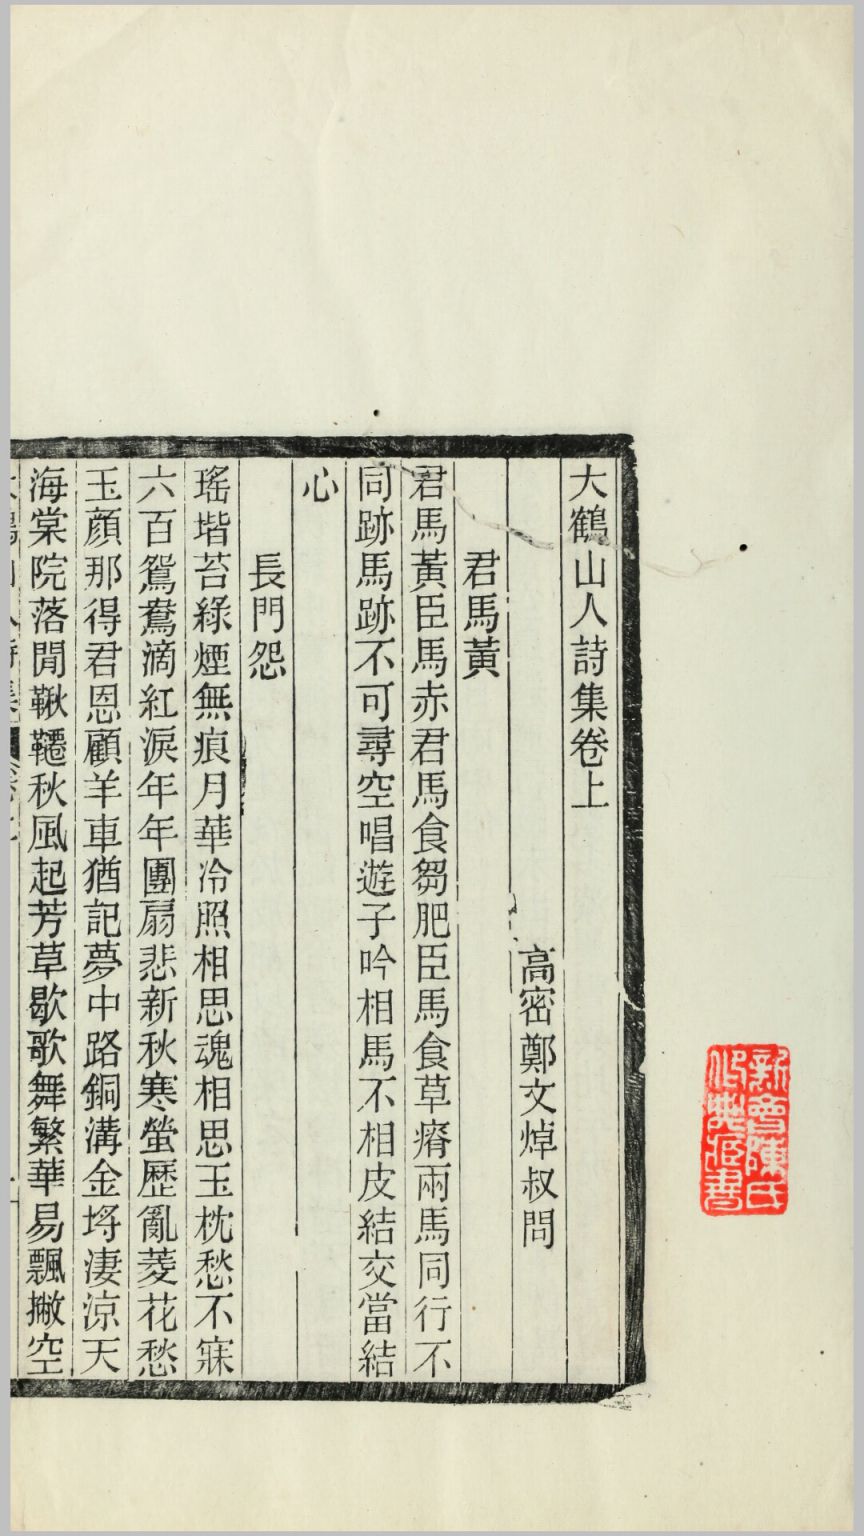 大鶴山人詩集卷上
高密鄭文焯叔問
君馬黃
君馬黃臣馬赤君馬食芻肥臣馬食草瘠兩馬同行不
同跡馬跡不可尋空唱遊子吟相馬不相皮結交當結
心
長門怨
瑤堦苔綠煙無痕月華冷照相思魂相思玉枕愁不寐
六百鴛鴦滴紅淚年年團扇悲新秋寒螢歷亂菱花愁
玉顏那得君恩顧羊車猶記夢中路銅溝金埒淒涼天
海棠院落閒鞦韆秋風起芳草歇歌舞繁華易飄撇空
新會陳氏